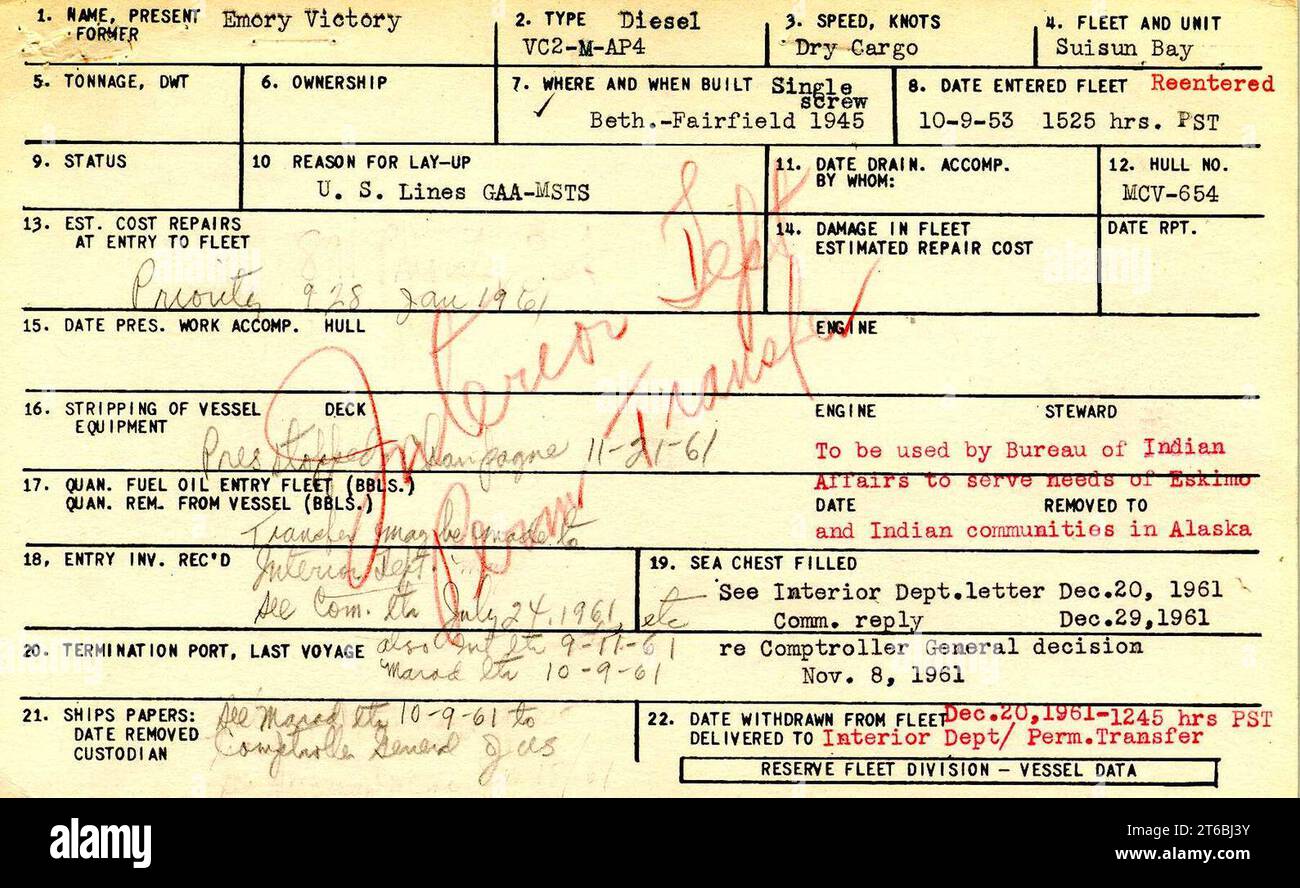 1. NAME, PRESENT Emory Victory
FORMER
2. TYPE Diesel
VC2-M-AP4
3. SPEED, KNOTS
Dry Cargo
4. FLEET AND UNIT
Suisun Bay
5. TONNAGE, DWT
6. OWNERSHIP
7. WHERE AND WHEN BUILT Single
screw
✓ Beth.-Fairfield 1945
8. DATE ENTERED FLEET Reentered
10-9-53 1525 hrs. PST
9. STATUS
10 REASON FOR LAY-UP
U. S. Lines GAA-MSTS
11. DATE DRAIN. ACCOMP.
BY WHOM:
12. HULL NO.
MCV-654
13. EST. COST REPAIRS
AT ENTRY TO FLEET
Priority 928 Jan 1961
14. DAMAGE IN FLEET
ESTIMATED REPAIR COST
DATE RPT.
15. DATE PRES. WORK ACCOMP. HULL
ENGINE
Interior Dept
Perm Transfer
16. STRIPPING OF VESSEL DECK
EQUIPMENT
ENGINE STEWARD
Pres Stopped Champagne 11-21-61
To be used by Bureau of Indian
Affairs to serve needs of Eskimo
17. QUAN. FUEL OIL ENTRY FLEET (BBLS.)
QUAN. REM. FROM VESSEL (BBLS.)
DATE REMOVED TO
and Indian communities in Alaska
Transfer may be made to
18, ENTRY INV. REC'D Interior Dept.
See Com. ltr July 24, 1961, etc
19. SEA CHEST FILLED
See Interior Dept.letter Dec.20, 1961
Comm. reply Dec.29,1961
20. TERMINATION PORT, LAST VOYAGE also Int ltr 9-11-61
Marad ltr 10-9-61
re Comptroller General decision
Nov. 8, 1961
21. SHIPS PAPERS: See Marad ltr 10-9-61 to
DATE REMOVED
CUSTODIAN Comptroller General of US
22. DATE WITHDRAWN FROM FLEET Dec.20,1961-1245 hrs PST
DELIVERED TO Interior Dept/ Perm.Transfer
RESERVE FLEET DIVISION - VESSEL DATA
alamy
Image ID: 2T6BJ3Y
www.alamy.com